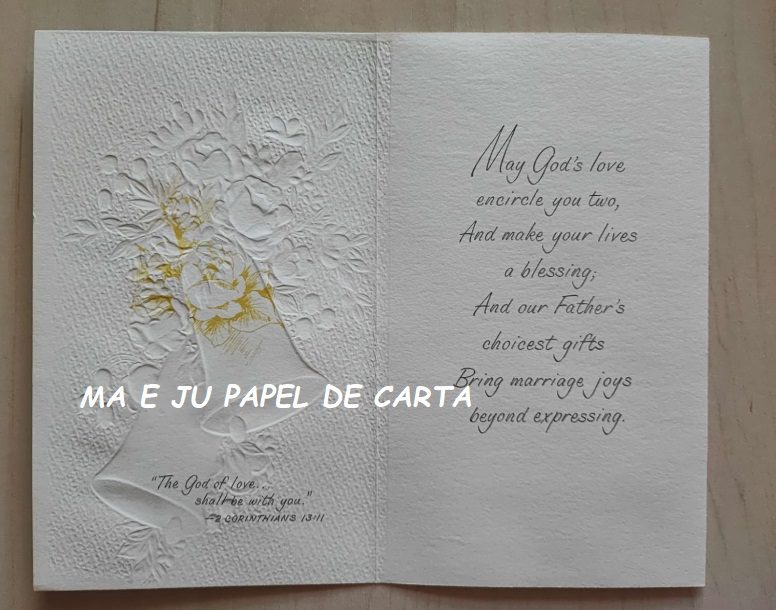 "The God of love...
shall be with you."
—2 CORINTHIANS 13:11
May God's love
encircle you two,
And make your lives
a blessing;
And our Father's
choicest gifts
Bring marriage joys
beyond expressing.
MA E JU PAPEL DE CARTA